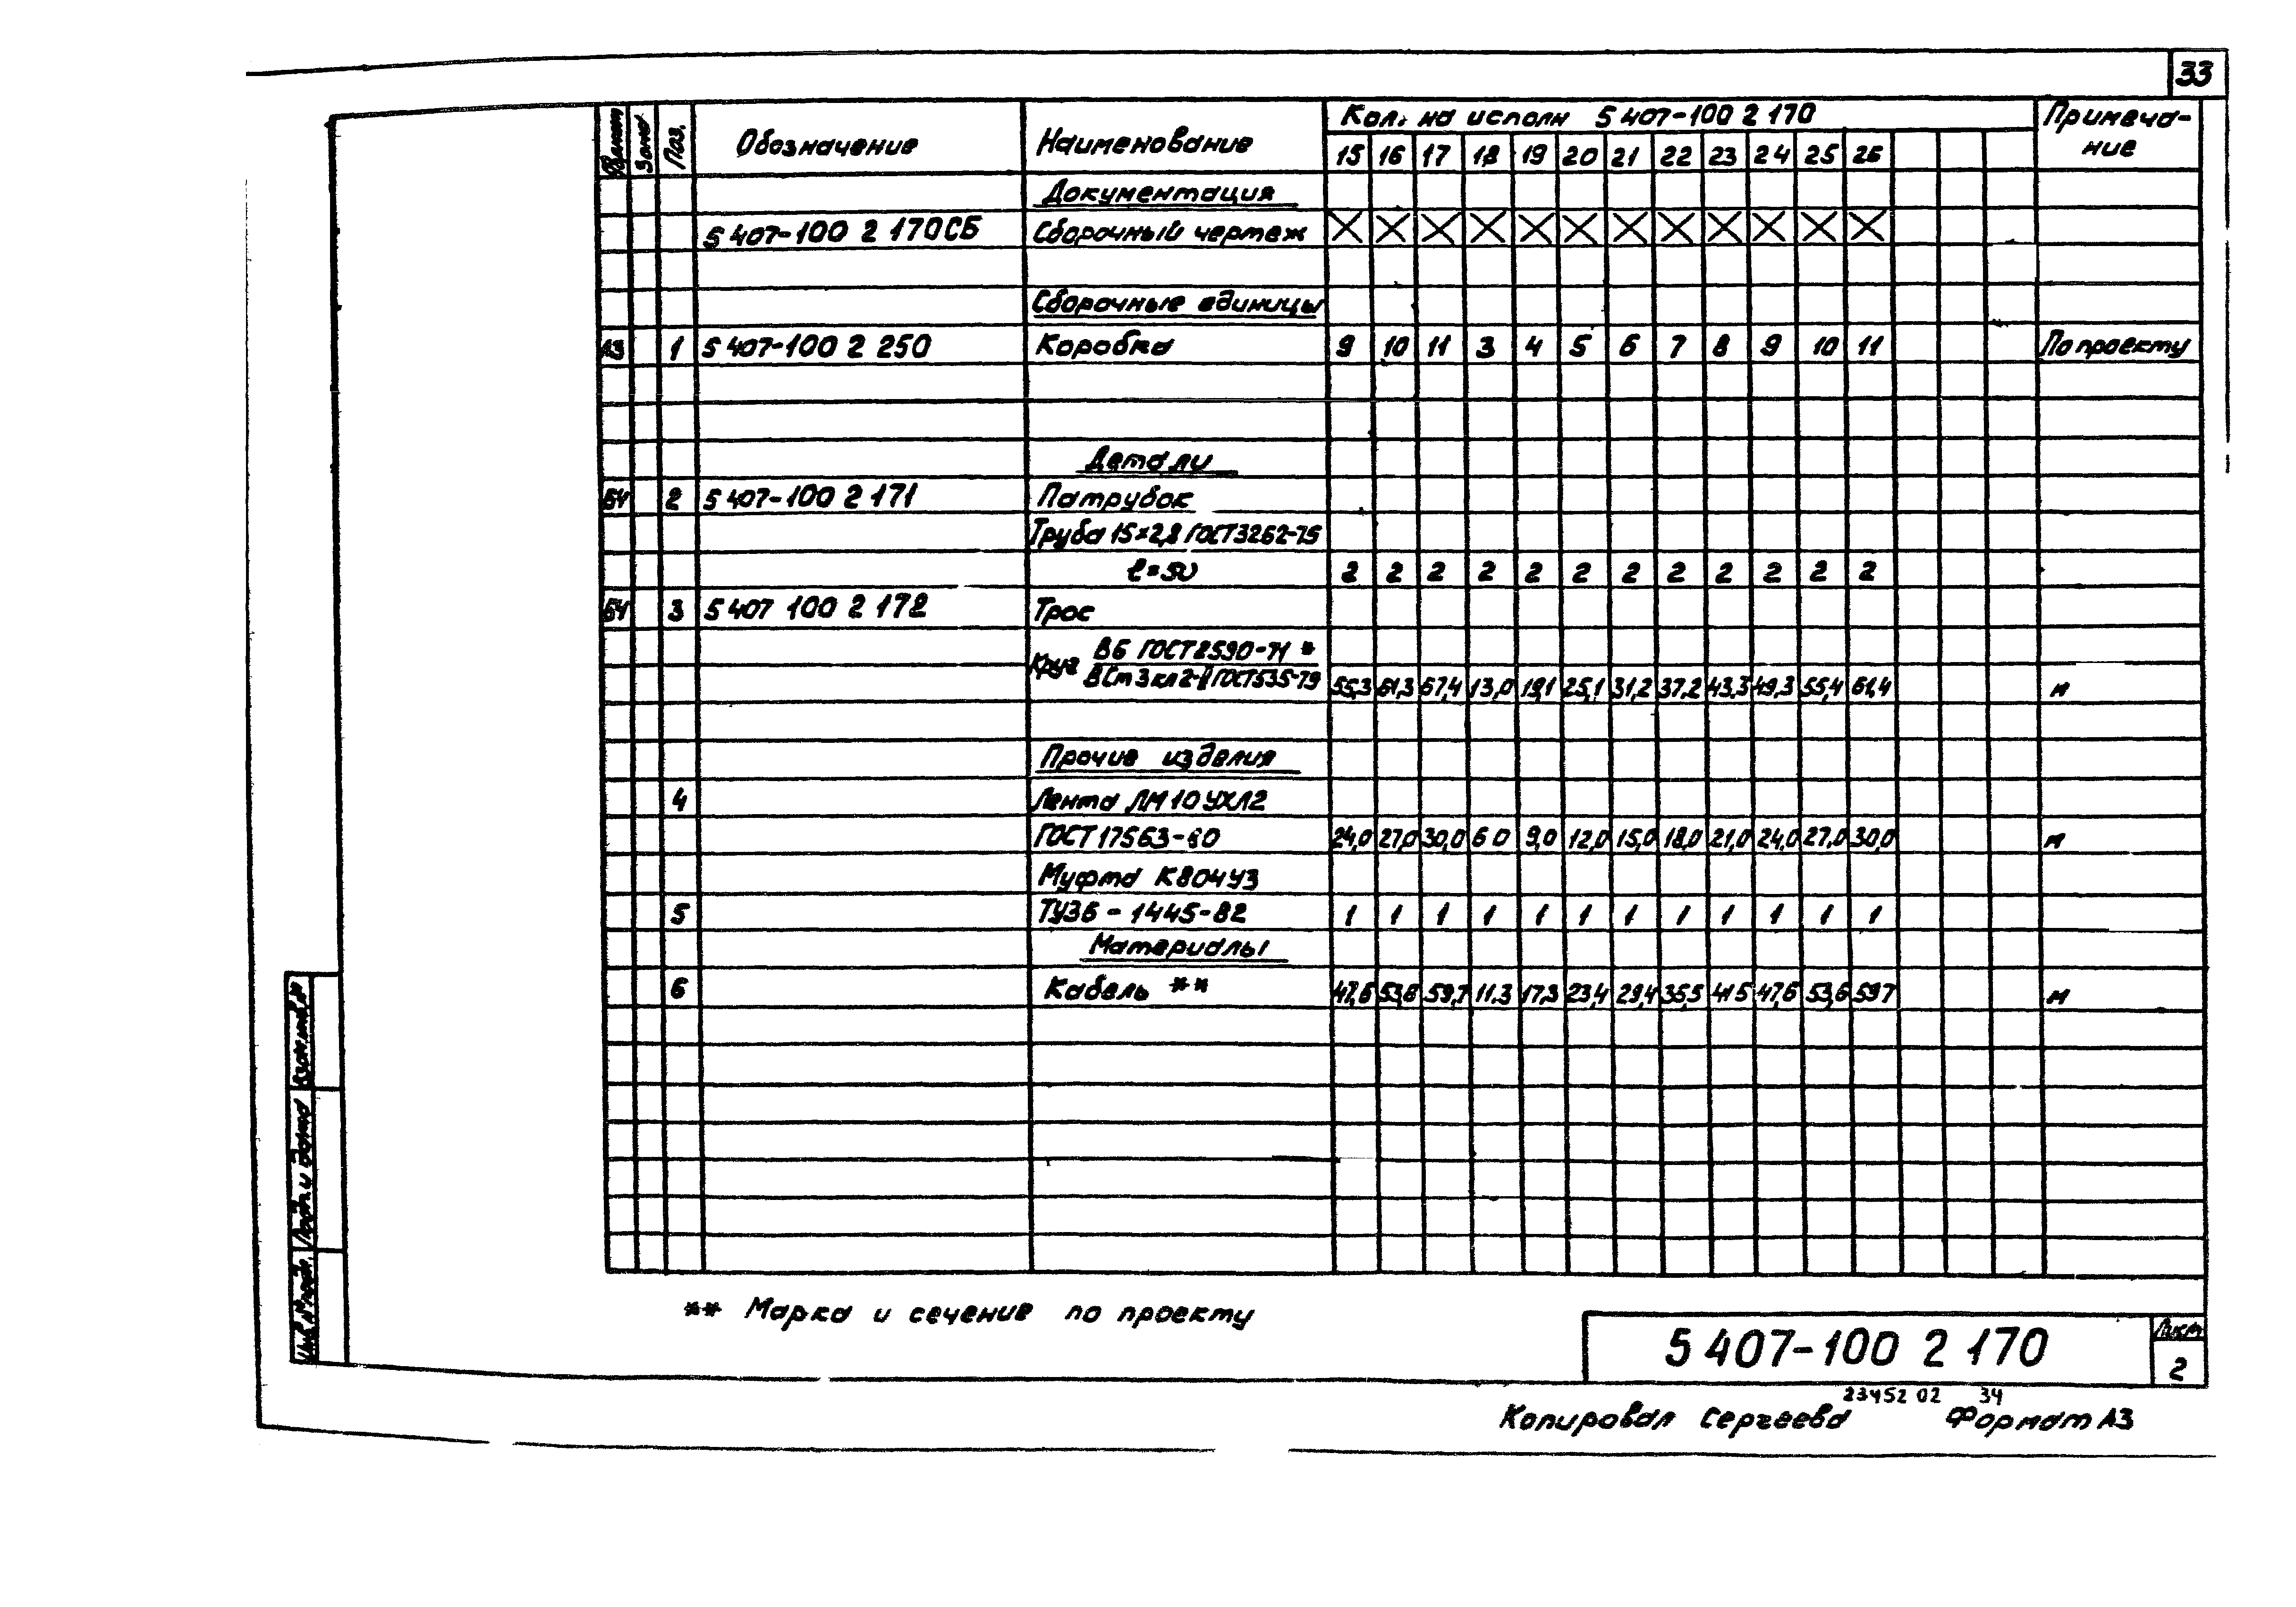 33
Формат Зона Поз. Обозначение Наименование Кол. на исполн 5 407-100 2 170 Примеча-
15 16 17 18 19 20 21 22 23 24 25 26 ние
Документация
5 407-100 2 170СБ Сборочный чертеж X X X X X X X X X X X X
Сборочные единицы
А3 1 5 407-100 2 250 Коробка 9 10 11 3 4 5 6 7 8 9 10 11 По проекту
Детали
БЧ 2 5 407-100 2 171 Патрубок
Труба 15×2,8 ГОСТ3262-75
ℓ=50 2 2 2 2 2 2 2 2 2 2 2 2
БЧ 3 5 407 100 2 172 Трос
Круг В6 ГОСТ2590-71 *
ВСт3кп2-II ГОСТ535-79 55,3 61,3 67,4 13,0 19,1 25,1 31,2 37,2 43,3 49,3 55,4 61,4 м
Прочие изделия
4 Лента ЛМ10УХЛ2
ГОСТ17563-80 24,0 27,0 30,0 6 0 9,0 12,0 15,0 18,0 21,0 24,0 27,0 30,0 м
Муфта К804У3
5 ТУ36-1445-82 1 1 1 1 1 1 1 1 1 1 1 1
Материалы
6 Кабель ** 47,6 53,6 59,7 11.3 17,3 23,4 29,4 35,5 41 5 47,6 53,6 59 7 м
** Марка и сечение по проекту
5 407-100 2 170
Лист
2
23452 02 34
Копировал Сергеева Формат А3
Взам.инв.№
Подп. и дата
Инв.№подл.